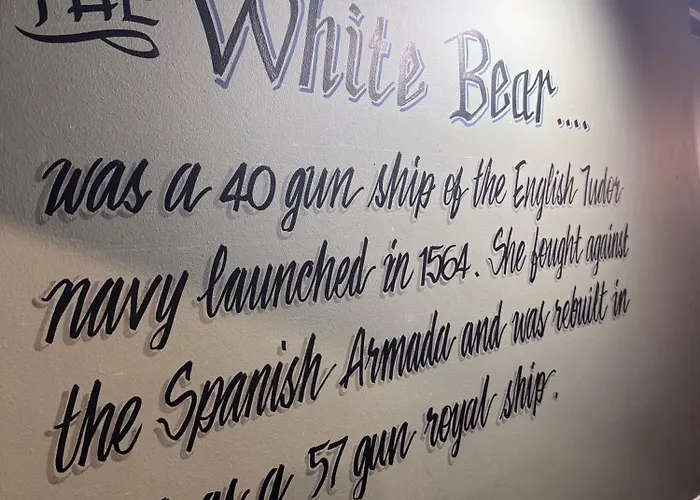 THE White Bear....
was a 40 gun ship of the English Tudor
navy launched in 1564. She fought against
the Spanish Armada and was rebuilt in
as a 57 gun royal ship.